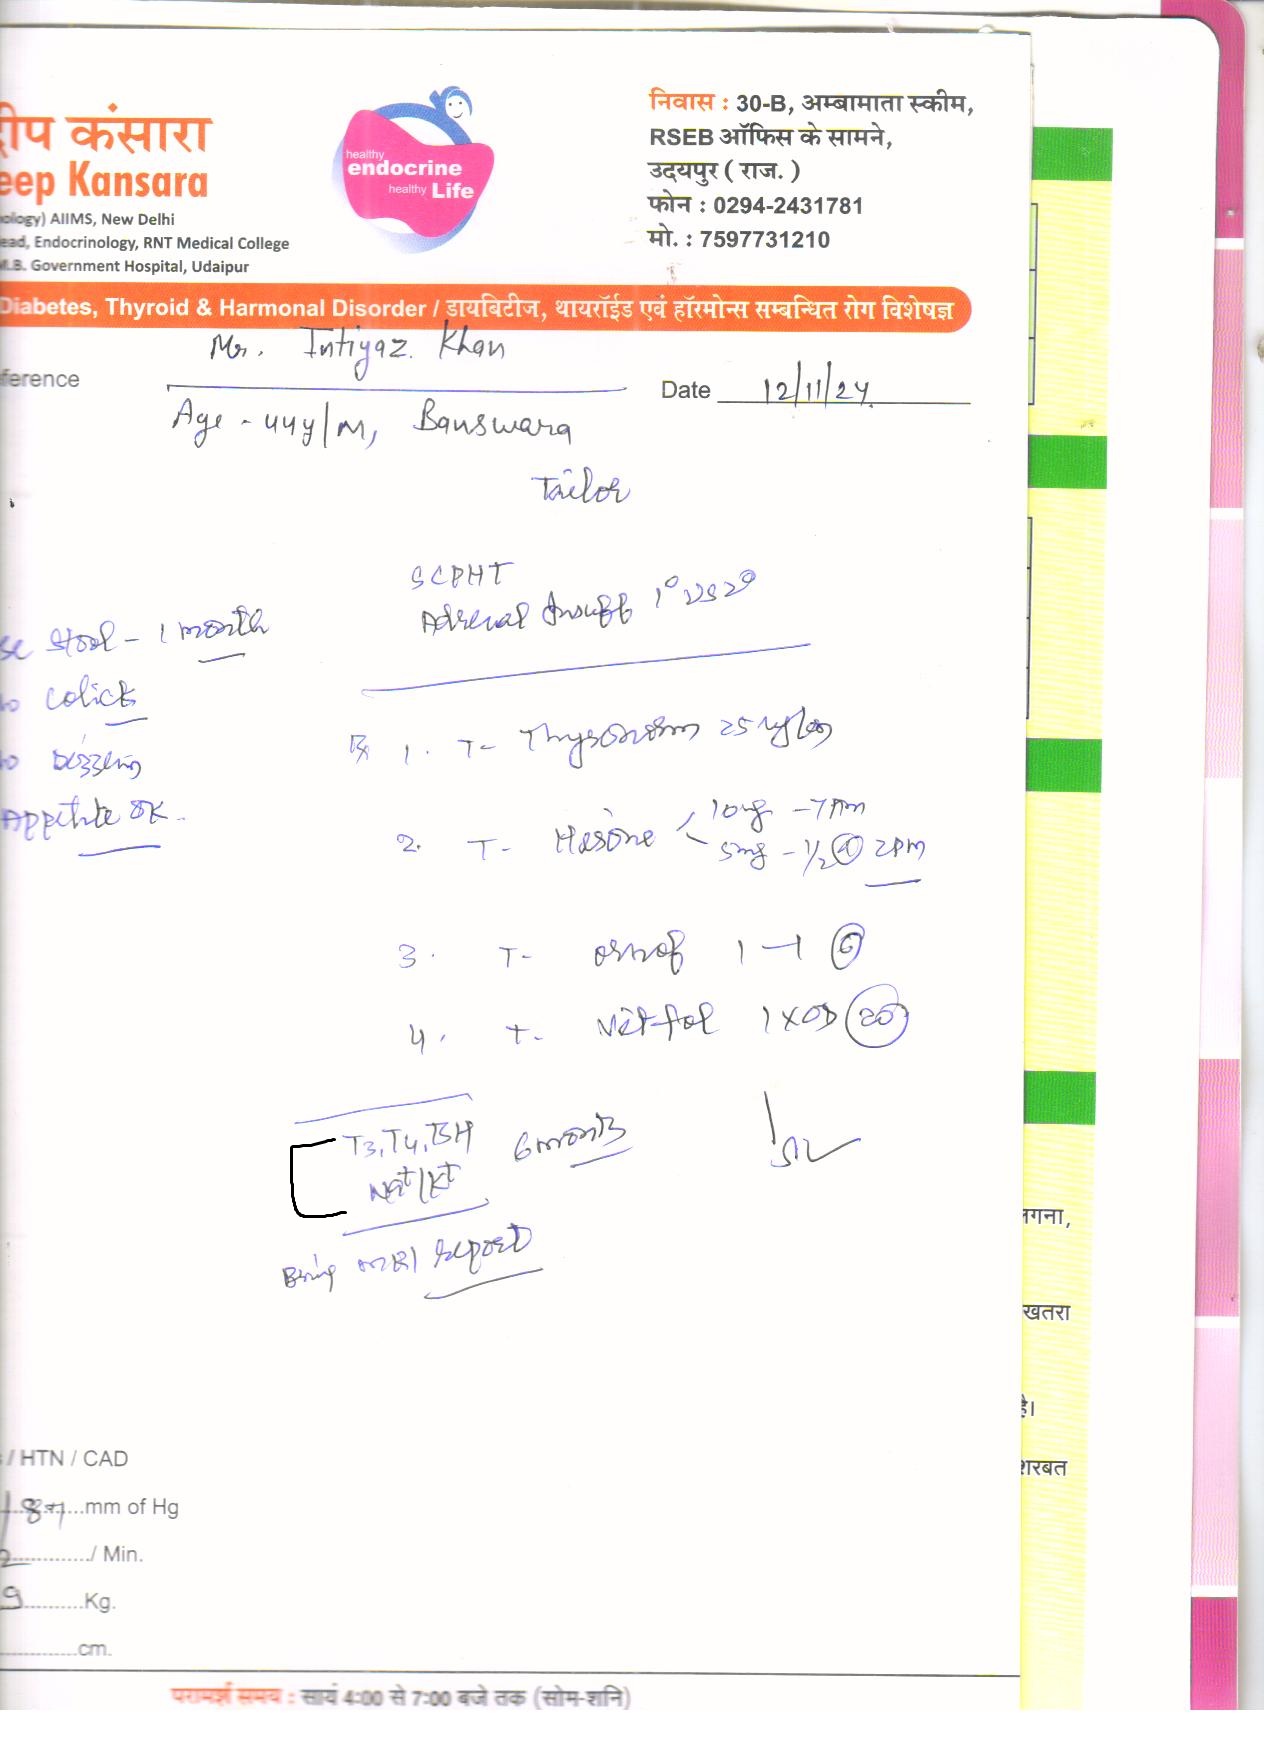 दीप कंसारा
eep Kansara
ology) AIIMS, New Delhi
ead, Endocrinology, RNT Medical College
M.B. Government Hospital, Udaipur
healthy
endocrine
healthy Life
निवास : 30-B, अम्बामाता स्कीम,
RSEB ऑफिस के सामने,
उदयपुर ( राज. )
फोन : 0294-2431781
मो. : 7597731210
Diabetes, Thyroid & Harmonal Disorder / डायबिटीज, थायरॉईड एवं हॉरमोन्स सम्बन्धित रोग विशेषज्ञ
Mr. Intiyaz Khan
ference
Date 12/11/24
Age - 44y/M, Banswara
Tailor
SCPHT
Adrenal Insuff 1° vs 2°
se stool - 1 month
o colick
Appetite OK.
1. T- Thyronorm 25
2. T- Hisone 10mg - 7
5mg - 1/2 @ 2PM
3. T- ornof 1-1 6
4. T- Vit-fol 1XOD 20
T3, T4, TSH 6 months
Na+/K+
Bring MRI report
/ HTN / CAD
mm of Hg
/ Min.
9 Kg.
cm.
लगना,
खतरा
है।
शरबत
परामर्श समय : सायं 4:00 से 7:00 बजे तक (सोम-शनि)